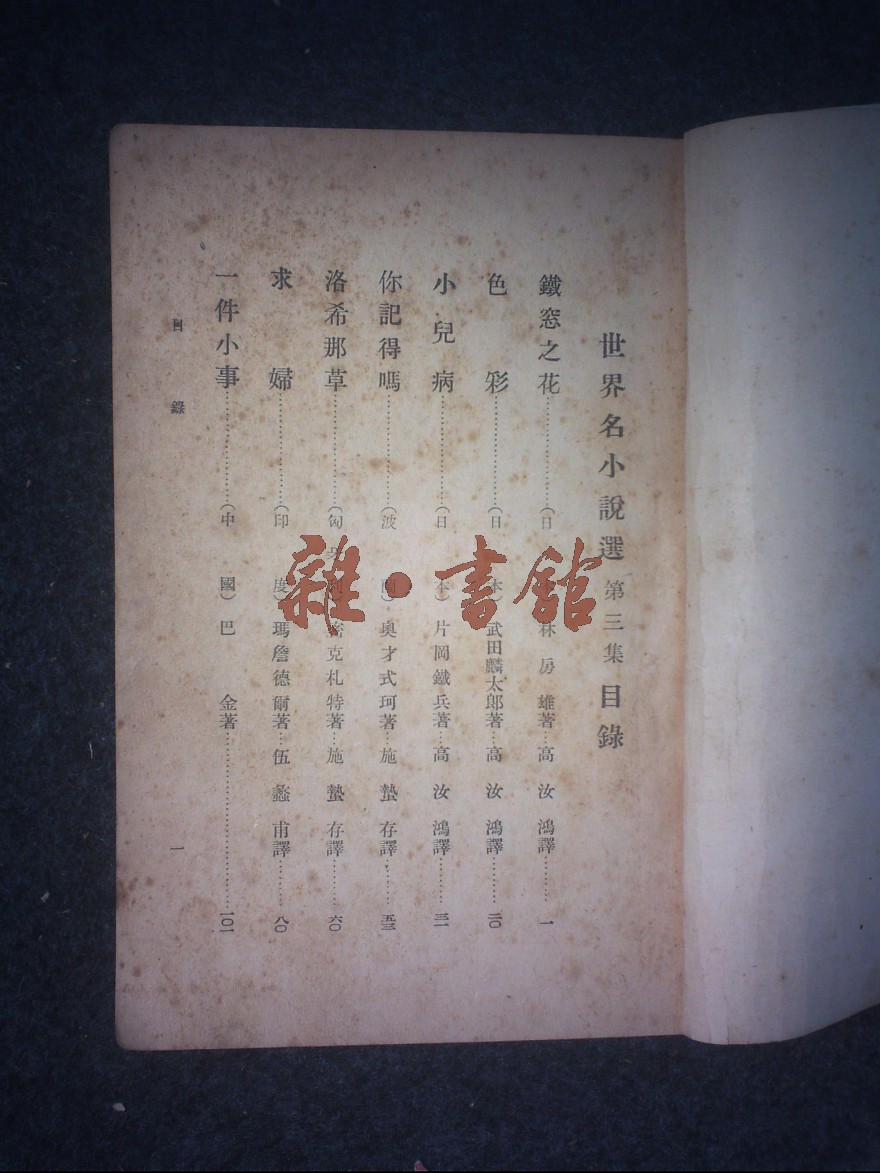 世界名小說選 第三集 目錄
鐵窓之花……(日 林房雄著…高汝鴻譯……一
色彩……(日本)武田麟太郎著…高汝鴻譯……二〇
小兒病……(日本)片岡鐵兵著…高汝鴻譯……三一
你記得嗎……(波 奥才式珂著…施蟄存譯……五三
洛希那草……(匈 密克札特著…施蟄存譯……六〇
求婦……(印度)瑪詹德爾著…伍蠡甫譯……八〇
一件小事……(中國)巴金著……一〇一
目錄
一
雜·書館